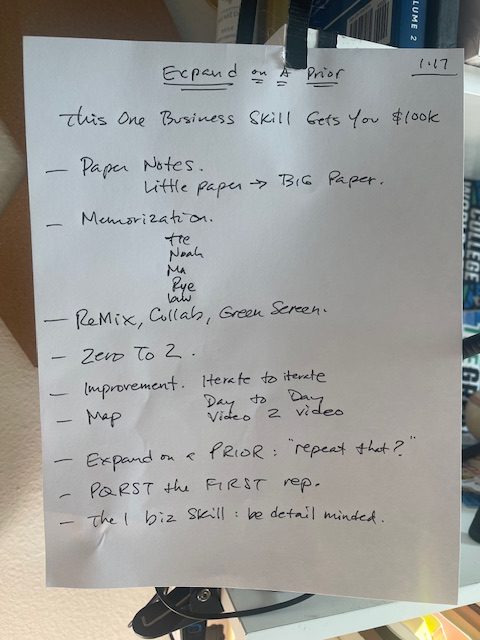 VOLUME 2
1.17
Expand on A Prior
This One Business Skill Gets You $100k
— Paper Notes.
Little paper → BIG Paper.
— Memorization.
tie
Noah
Ma
Rye
law
— ReMix, Collab, Green Screen.
— Zero To 2.
— Improvement. Iterate to iterate
Day to Day
— Map Video 2 video
— Expand on a PRIOR: "repeat that?"
— PQRST the FIRST rep.
— The 1 biz skill: be detail minded.
COLLEGE